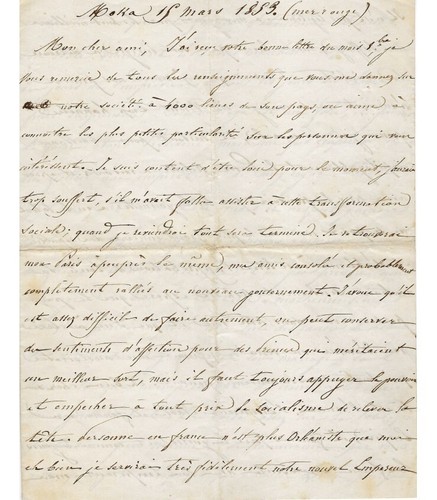 Moka 15 Mars 1853. (mer rouge).
Mon cher ami, J'ai reçu votre bonne lettre du mois 8bre je
vous remercie de tous les renseignements que vous me donnez sur
notre société à 4000 lieues de son pays, on aime à
connaitre les plus petites particularités sur les personnes qui vous
intéressent. Je suis content d'être loin pour le moment, j'aurais
trop souffert, s'il m'avait fallu assister à cette transformation
sociale. quand je reviendrai tout sera terminé. Je retrouverai
mon Paris à peu près le même, mes amis consolés et probablement
complètement ralliés au nouveau gouvernement. J'avoue qu'il
est assez difficile de faire autrement, on peut conserver
des sentiments d'affection pour des princes qui méritaient
un meilleur sort, mais il faut toujours appuyer le pouvoir
et empecher à tout prix le socialisme de relever la
tête. Personne en france n'est plus Orléaniste que moi
eh bien je servirai très fidèlement notre nouvel Empereur